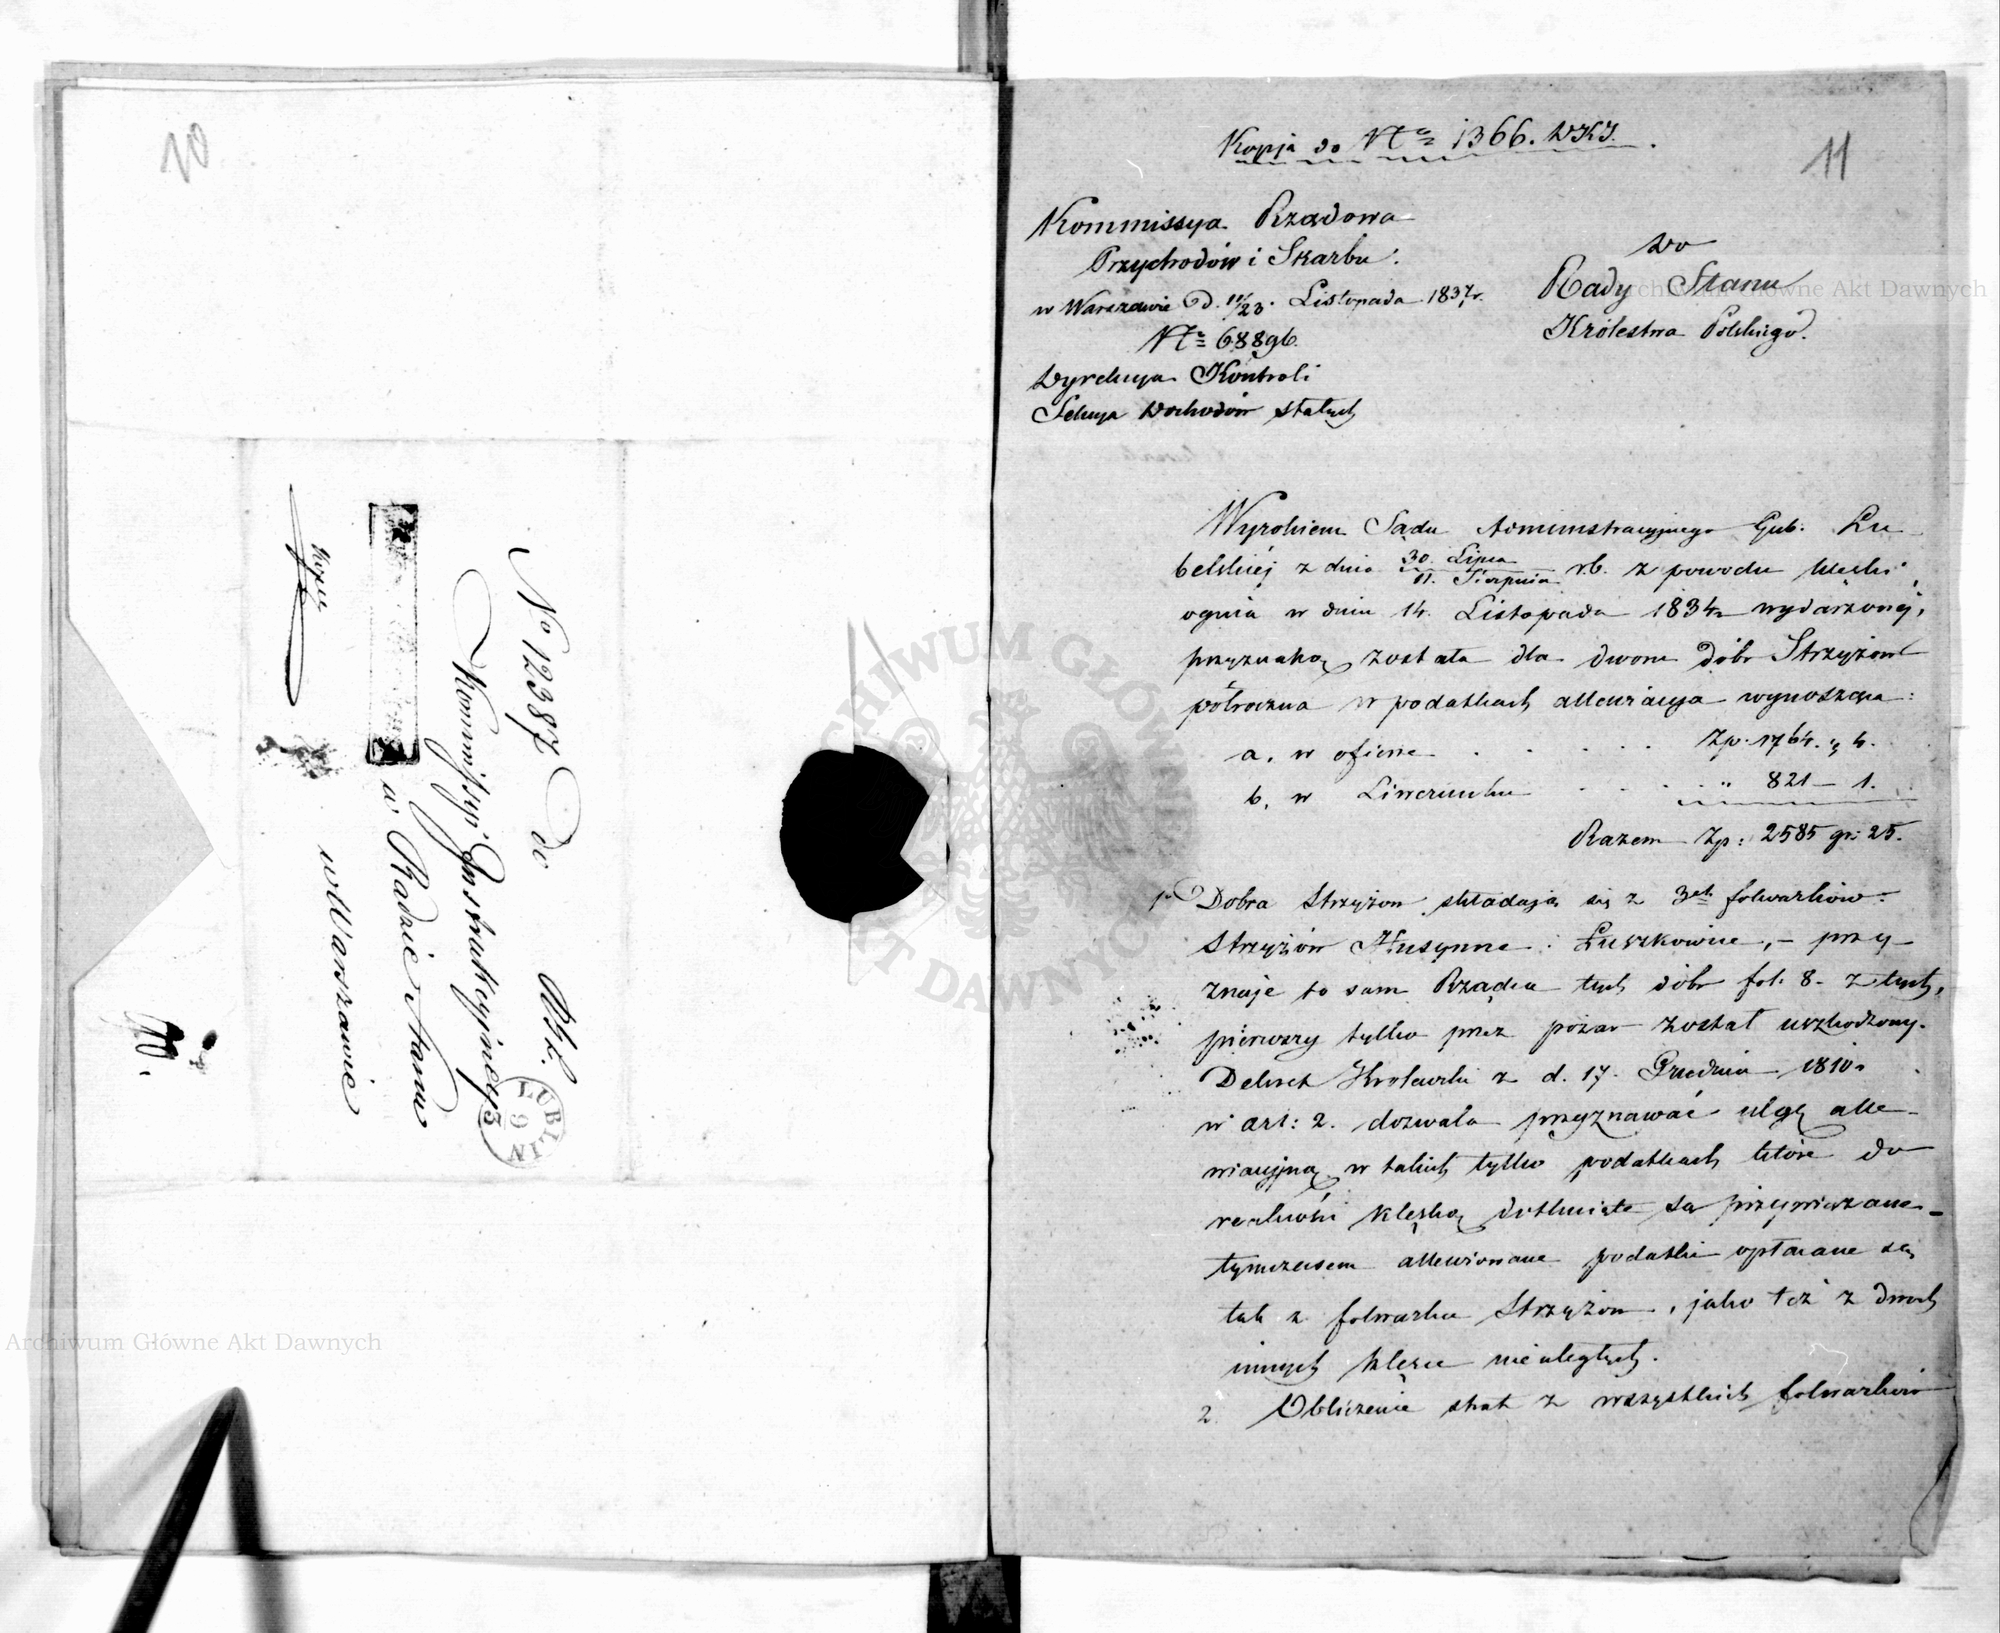 10
No 12387 do
Kommissyi Instrukcyjnej
w Radzie Stanu
w Warszawie
LUBLIN
9
Kopja do Nr 1366. DKJ.
11
Kommissya Rządowa
Przychodów i Skarbu.
w Warszawie d. 11/23. Listopada 1837r.
Nr 68896.
Dyrekcya Kontroli
Sekcya Dochodów stałych
Do
Rady Stanu
Królestwa Polskiego.
Wyrokiem Sądu Administracyjnego Gub: Lu-
belskiéj z dnia 30. Lipca / 11. Sierpnia r.b. z powodu klęski
ognia w dniu 14. Listopada 1834r wydarzonéj,
przyznaną została dla dworu dóbr Strzyżów
półroczna w podatkach allewiacya wynosząca:
a, w ofierze . . . . . Zp. 1764. „ 4.
b, w Liwerunku . . . „ 821 – 1.
Razem Zp: 2585 gr: 25.
1. Dobra Strzyżow składają się z 3ch folwarków:
Strzyżów Husynne i Łuszkowice, – przy-
znaje to sam Rządca tych dóbr fol: 8. – Z tych,
piérwszy tylko przez pożar został uszkodzony.
Dekret Krolewski z d. 17. Grudnia 1810r
w art: 2. dozwala przyznawać ulgę alle-
wiacyjną w takich tylko podatkach które do
realności klęską dotknięte są przywiązane –
tymczasem allewiowane podatki opłacane są
tak z folwarku Strzyżow, jako też z dwóch
innych klęsce nieuległych.
2. Obliczenie strat z wszystkich folwarków
Archiwum Główne Akt Dawnych